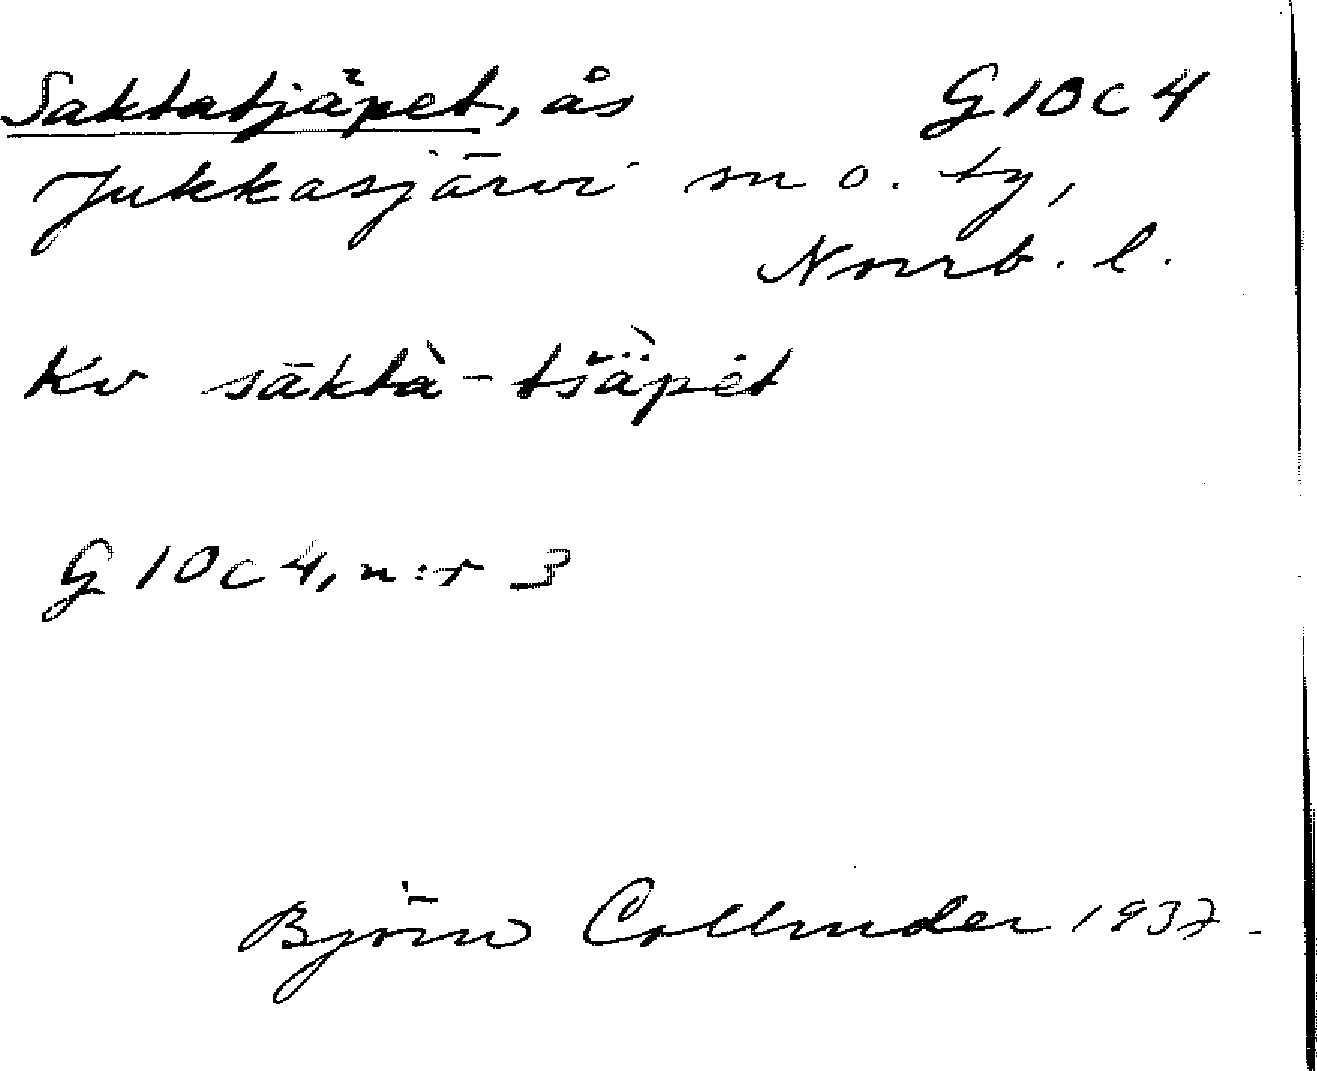 Saktatjåpet, ås G 10 c 4
Jukkasjärvi sn o. tg,
Norrb. l.
Kv sāktὰ-tšä̀pèt
G 10 c 4, n:r 3
Björn Collinder 1937.